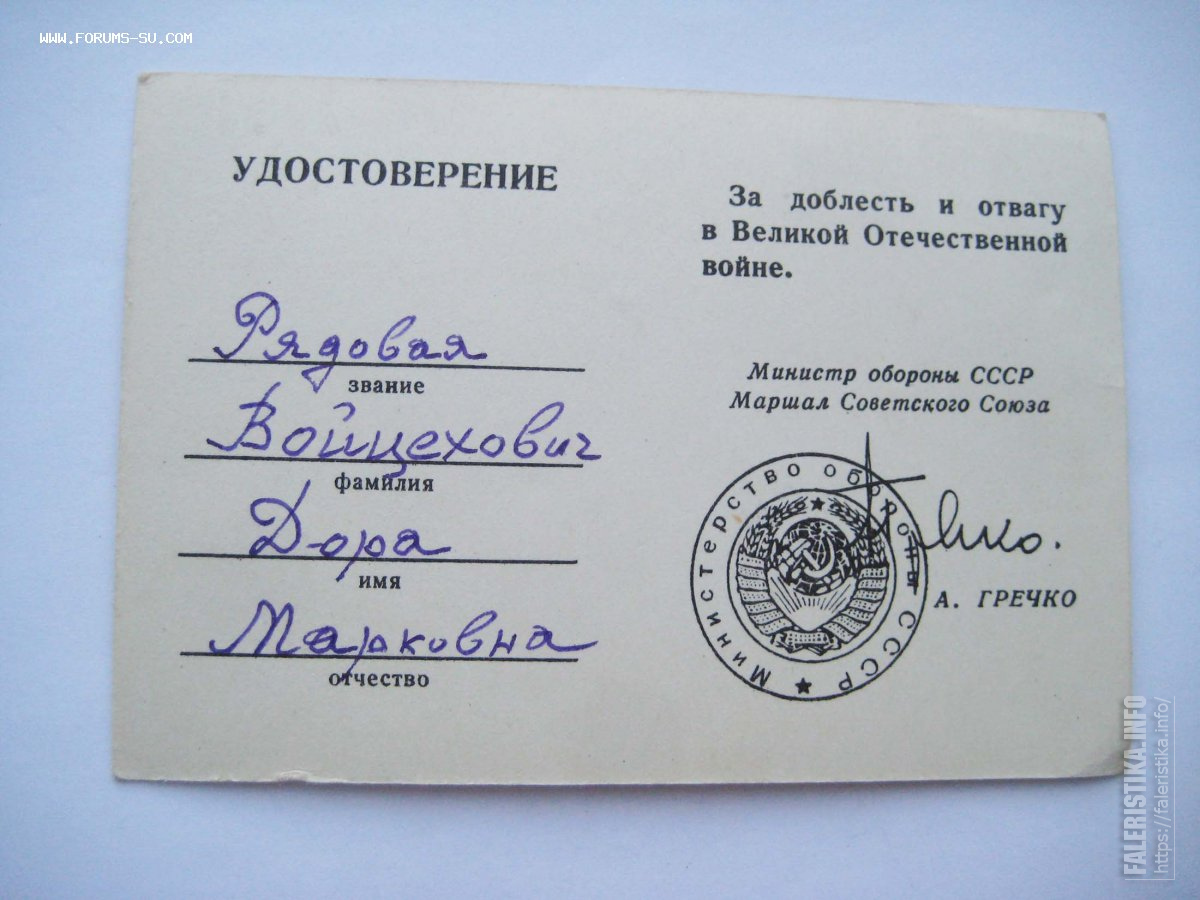 WWW.FORUMS-SU.COM
УДОСТОВЕРЕНИЕ
Рядовая
звание
Войцехович
фамилия
Дора
имя
Марковна
отчество
За доблесть и отвагу
в Великой Отечественной
войне.
Министр обороны СССР
Маршал Советского Союза
Министерство обороны СССР
А. ГРЕЧКО
FALERISTIKA.INFO
https://faleristika.info/